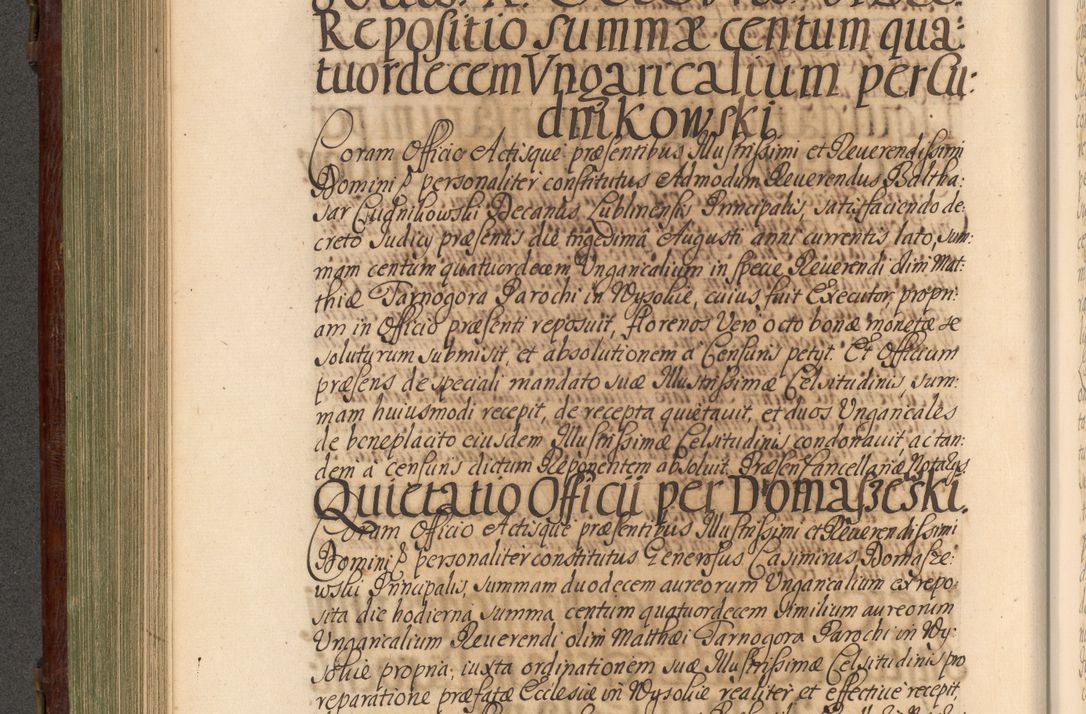 Repositio summæ centum qua:
tuordecem Vngaricalium per Cu:
dnikowski.
Coram Officio Actisque præsentibus Illustrissimi et Reuerendissimi
Domini personaliter constitutus Admodum Reuerendus Baltha:
sar Cugnikowski Decanus Lublinensis Principalis, satisfaciendo de:
creto Judicij præsentis die trigesima Augusti anni currentis lato, sum:
mam centum quatuordecem Ungaricalium in specie Reuerendi olim Mat:
thiæ Tarnogora Parochi in Wysokie, cuius fuit Executor, propri:
am in Officio præsenti reposuit, florenos Vero octo bonæ monetæ se
soluturum submisit, et absolutionem a Censuris petyt. Et Officium
præsens de speciali mandato suæ Illustrissimæ Celsitudinis, sum:
mam huiusmodi recepit, de recepta quietauit, et duos Ungaricales
de beneplacito eiusdem Illustrissimæ Celsitudinis condonauit, ac tan:
dem a censuris dictum Reponentem absoluit. Præsen Cancellariæ Notarijs
Quietatio Officij per Domaszeski.
Coram Officio Actisque præsentibus Illustrissimi et Reuerendissimi
Domini personaliter constitutus Generosus Casimirus Domasze:
wski Principalis, summam duodecem aureorum Ungaricalium ex repo:
sita die hodierna summa centum quatuordecem similium aureorum
Ungaricalium Reuerendi olim Matthæi Tarnogora Parochi in Wy:
sokie propria, iuxta ordinationem suæ Illustrissimæ Celsitudinis pro
reparatione præfatæ Ecclesiæ in Wysokie realiter et effectiue recepit,